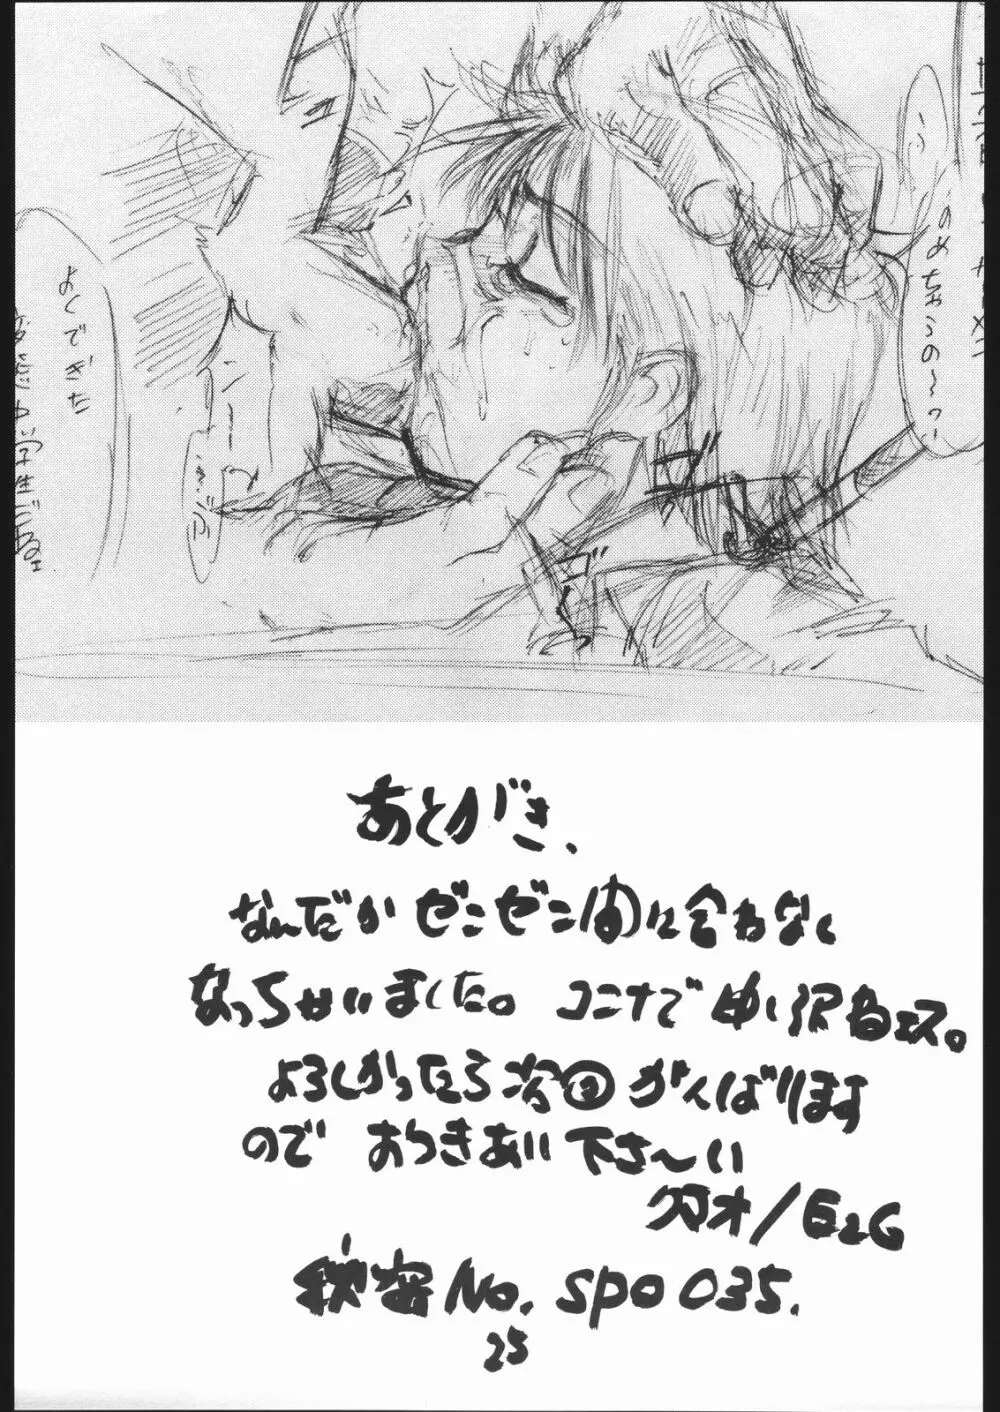 のめちゃうの〜っ
よくできた
ゴ
ゴ
あとがき、
なんだか ゼンゼン間に合わなく
なっちゃいました。 コンナで申し訳ねェス。
よろしかったら次回がんばります
ので おつきあい下さ〜い
クマオ/E2G
秘密No. SPO 035.
25